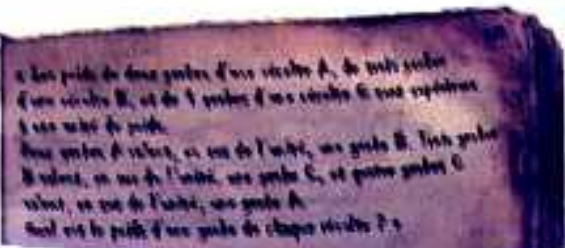 « Les poids de deux gerbes d'une récolte A, de trois gerbes
d'une récolte B, et de 4 gerbes d'une récolte C sont supérieurs
à une unité de poids.
Deux gerbes A valent, en sus de l'unité, une gerbe B. Trois gerbes
B valent, en sus de l'unité, une gerbe C, et quatre gerbes C
valent, en sus de l'unité, une gerbe A.
Quel est le poids d'une gerbe de chaque récolte ? »